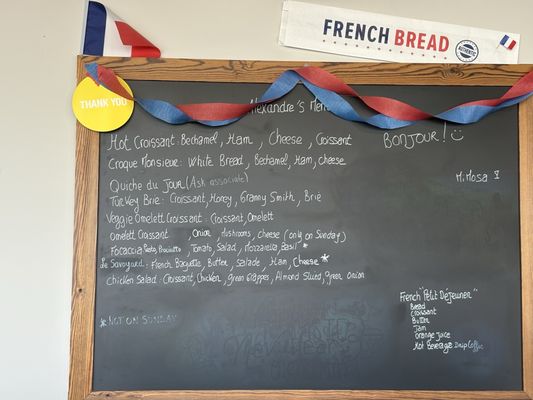 FRENCH BREAD
AUTHENTIC
THANK YOU
Alexandre's Menu
BONJOUR! ☺
Hot Croissant: Bechamel, Ham, Cheese, Croissant
Croque Monsieur: White Bread, Bechamel, Ham, cheese
Mimosa
Quiche du JOUR (Ask associate)
Turkey Brie: Croissant, Honey, Granny Smith, Brie
Veggie Omelett Croissant: Croissant, Omelett
Omelett Croissant, Onion, Mushrooms, cheese (only on Sunday)
Focaccia Pesto, Prosciutto Tomato, Salad, Mozzarella, Basil *
Le Savoyard: French Baguette, Butter, Salade, Ham, Cheese *
Chicken Salad: Croissant, Chicken, Green Grappes, Almond Sliced, Green Onion
* NOT ON SUNDAY
French "Petit Dejeuner"
Bread
Croissant
Butter
Jam
Orange Juice
Hot Beverage Drip Coffee